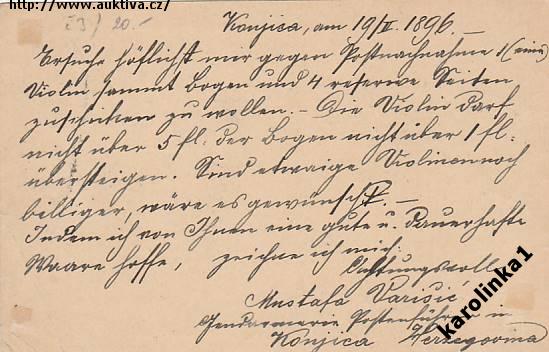 http://www.auktiva.cz
23/ 20.-
Konjica, am 19/II. 1896.-
Ersuche höflichst mir gegen Postnachnahme 1 (eine)
Violin sammt Bogen und 4 reserwe Seiten
zuschicken zu wollen.- Die Violin darf
nicht über 5 fl. der Bogen nicht über 1 fl.
übersteigen. Sind etwaige Violinen noch
billiger, wäre es gewünscht.-
Indem ich von Ihnen eine gute u. dauerhafte
Waare hoffe, zeichne ich mich
Achtungsvoll
Mustafa Varišić
Gendarmerie Postenführer in
Konjica Herzegovina
karolinka1